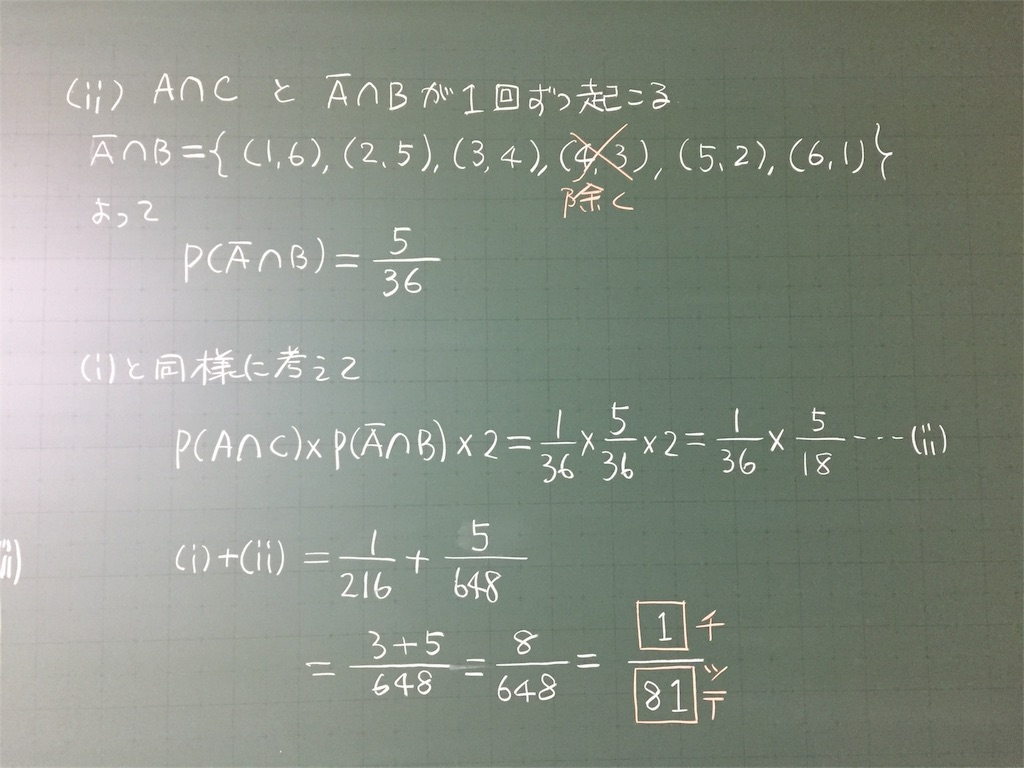 (ii) A∩C と Ā∩B が1回ずつ起こる
Ā∩B={(1,6),(2,5),(3,4),(4,3),(5,2),(6,1)}
除く
よって
P(Ā∩B)=5/36
(i)と同様に考えて
P(A∩C)×P(Ā∩B)×2=1/36×5/36×2=1/36×5/18…(ii)
(i)+(ii)=1/216+5/648
=3+5/648=8/648=1/81
チ
ツテ